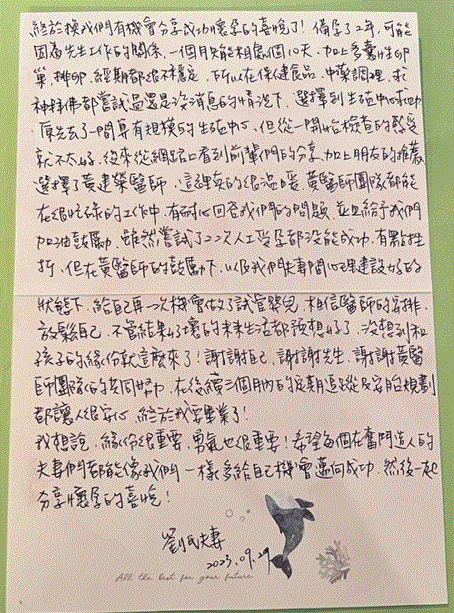 終於換我們有機會分享成功懷孕的喜悅了！備孕了2年，可能
因為先生工作的關係，一個月只能相處個10天，加上多囊性卵
巢，排卵、經期都很不穩定，所以在保健食品、中藥調理、求
神拜佛都嘗試過還是沒消息的情況下，選擇到生殖中心求助
原先去了一間算有規模的生殖中心，但從一開始檢查的感受
就不太好，後來從網路上看到前輩們的分享，加上朋友的推薦
選擇了黃建榮醫師，這裡真的很溫暖，黃醫師團隊都能
在很忙碌的工作中，有耐心回答我們的問題，並且給予我們
加油鼓勵，雖然嘗試了2次人工受孕都沒能成功，有點挫
折，但在黃醫師的鼓勵下，以及我們夫妻間心理建設好的
狀態下，給自己再一次機會做了試管嬰兒，相信醫師的安排，
放鬆自己，不管結果好壞的未來生活都預想好了，沒想到和
孩子的緣份就這麼來了！謝謝自己、謝謝先生、謝謝黃醫
師團隊的共同努力，在後續三個月內的定期追蹤及安胎規劃
都讓人很安心，終於我要畢業了！
我想說，緣份很重要，勇氣也很重要！希望每個在奮鬥造人的
夫妻們都能像我們一樣多給自己機會邁向成功，然後一起
分享懷孕的喜悅！
劉氏夫妻
2023.09.29
All the best for your future